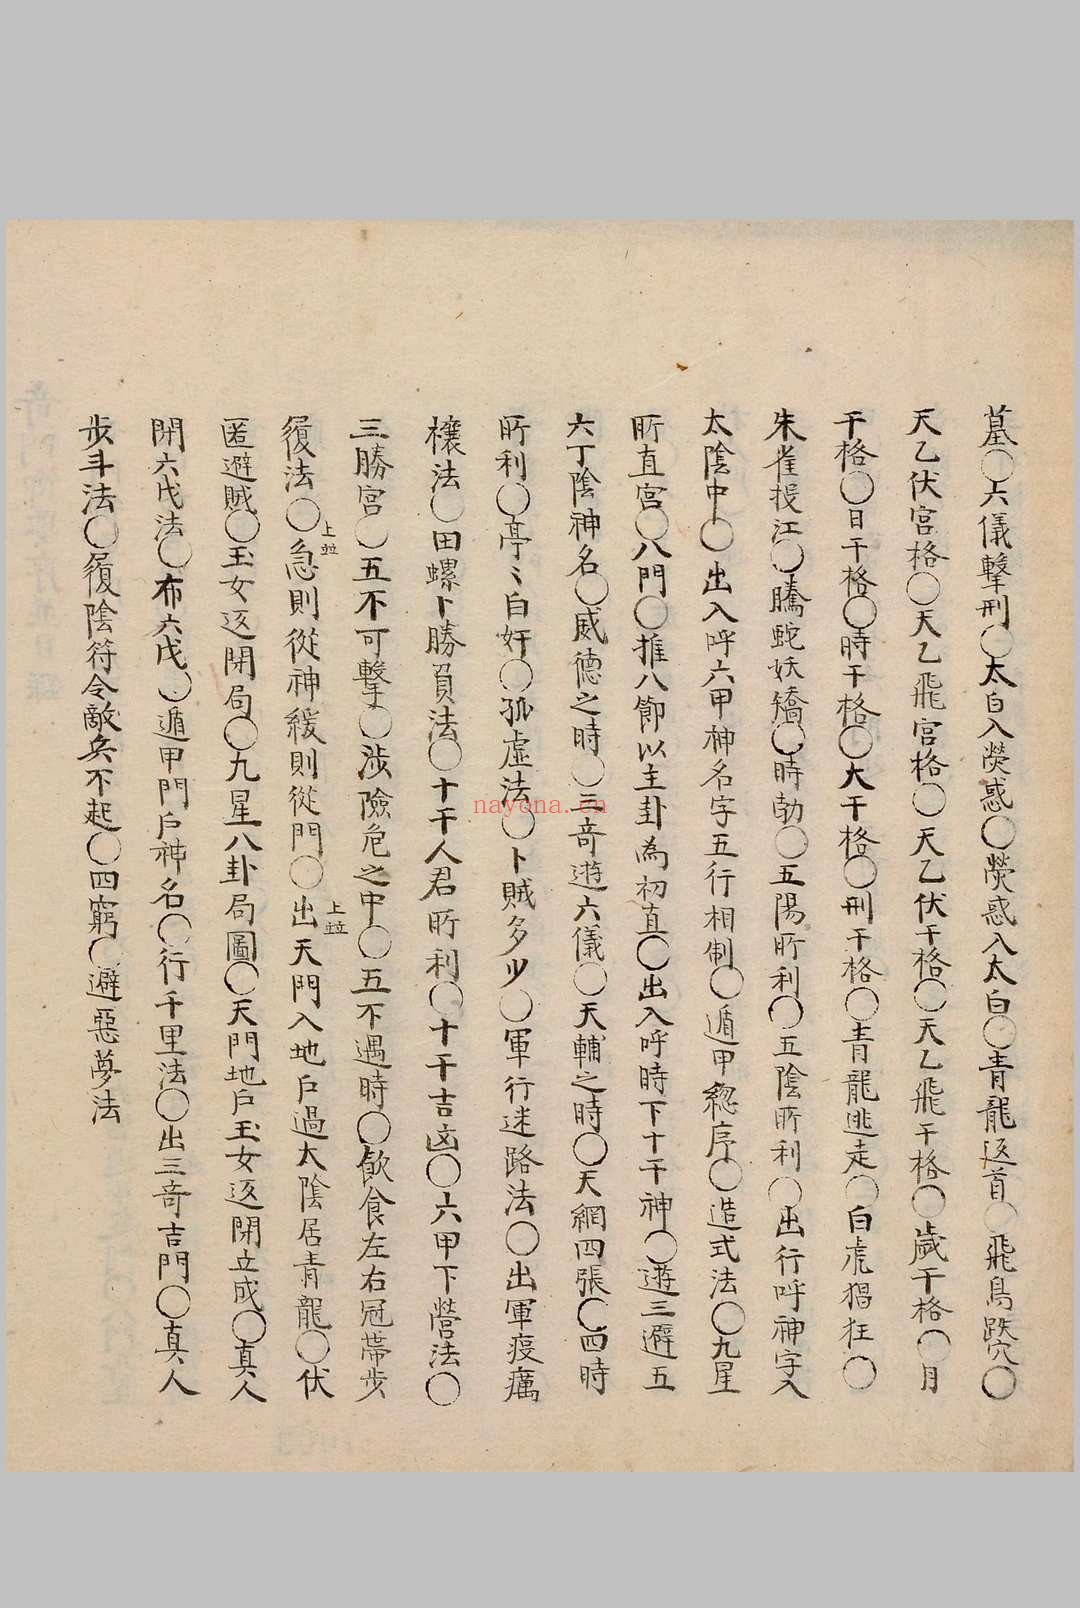 墓〇六儀擊刑〇太白入熒惑〇熒惑入太白〇青龍返首〇飛鳥跌穴〇
天乙伏宮格〇天乙飛宮格〇天乙伏干格〇天乙飛干格〇歲干格〇月
干格〇日干格〇時干格〇大干格〇刑干格〇青龍逃走〇白虎猖狂〇
朱雀投江〇騰蛇妖矯〇時勃〇五陽所利〇五陰所利〇出行呼神字入
太陰中〇出入呼六甲神名字五行相制〇遁甲総序〇造式法〇九星
所直宮〇八門〇推八節以主卦為初直〇出入呼時下十干神〇遊三避五
六丁陰神名〇威德之時〇三奇遊六儀〇天輔之時〇天網四張〇四時
所利〇亭〻白奸〇孤虛法〇卜賊多少〇軍行迷路法〇出軍疫癘
禳法〇田螺卜勝負法〇十干人君所利〇十干吉凶〇六甲下營法〇
三勝宮〇五不可擊〇涉險危之中〇五不遇時〇飲食左右冠帶步
履法〇上並急則從神緩則從門〇上並出天門入地戶過太陰居青龍〇伏
匿避賊〇玉女返閉局〇九星八卦局圖〇天門地戶玉女返閉立成〇真人
閉六戊法〇布六戊〇遁甲門戶神名〇行千里法〇出三奇吉門〇真人
步斗法〇履陰符令敵兵不起〇四窮〇避惡夢法
nayona.cn